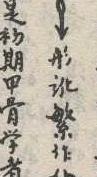 形訛繁作
是初期甲骨学者